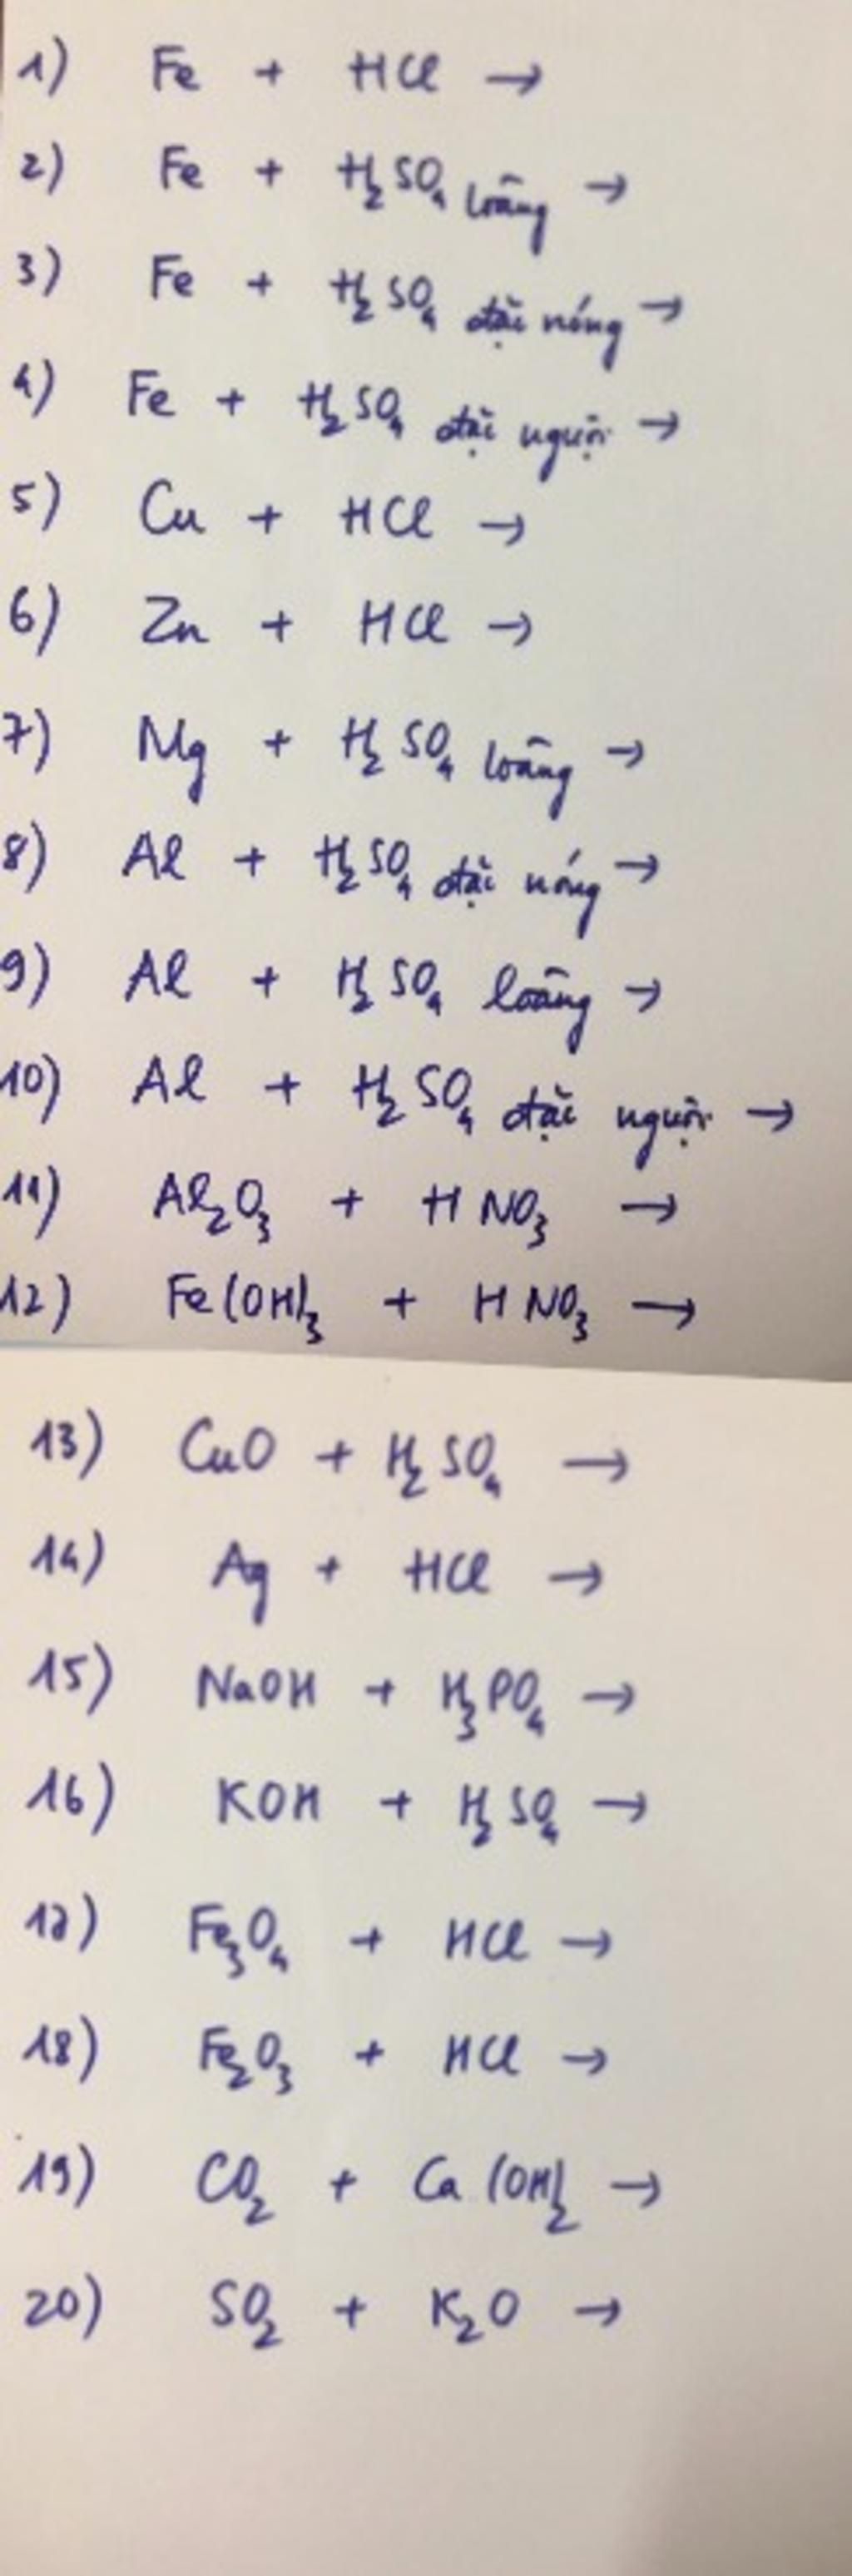 1) Fe + HCl →
2) Fe + H₂SO₄ loãng →
3) Fe + H₂SO₄ đặc nóng →
4) Fe + H₂SO₄ đặc nguội →
5) Cu + HCl →
6) Zn + HCl →
7) Mg + H₂SO₄ loãng →
8) Al + H₂SO₄ đặc nóng →
9) Al + H₂SO₄ loãng →
10) Al + H₂SO₄ đặc nguội →
11) Al₂O₃ + HNO₃ →
12) Fe(OH)₃ + HNO₃ →
13) CuO + H₂SO₄ →
14) Ag + HCl →
15) NaOH + H₃PO₄ →
16) KOH + H₂SO₄ →
17) Fe₃O₄ + HCl →
18) Fe₂O₃ + HCl →
19) CO₂ + Ca(OH)₂ →
20) SO₂ + K₂O →